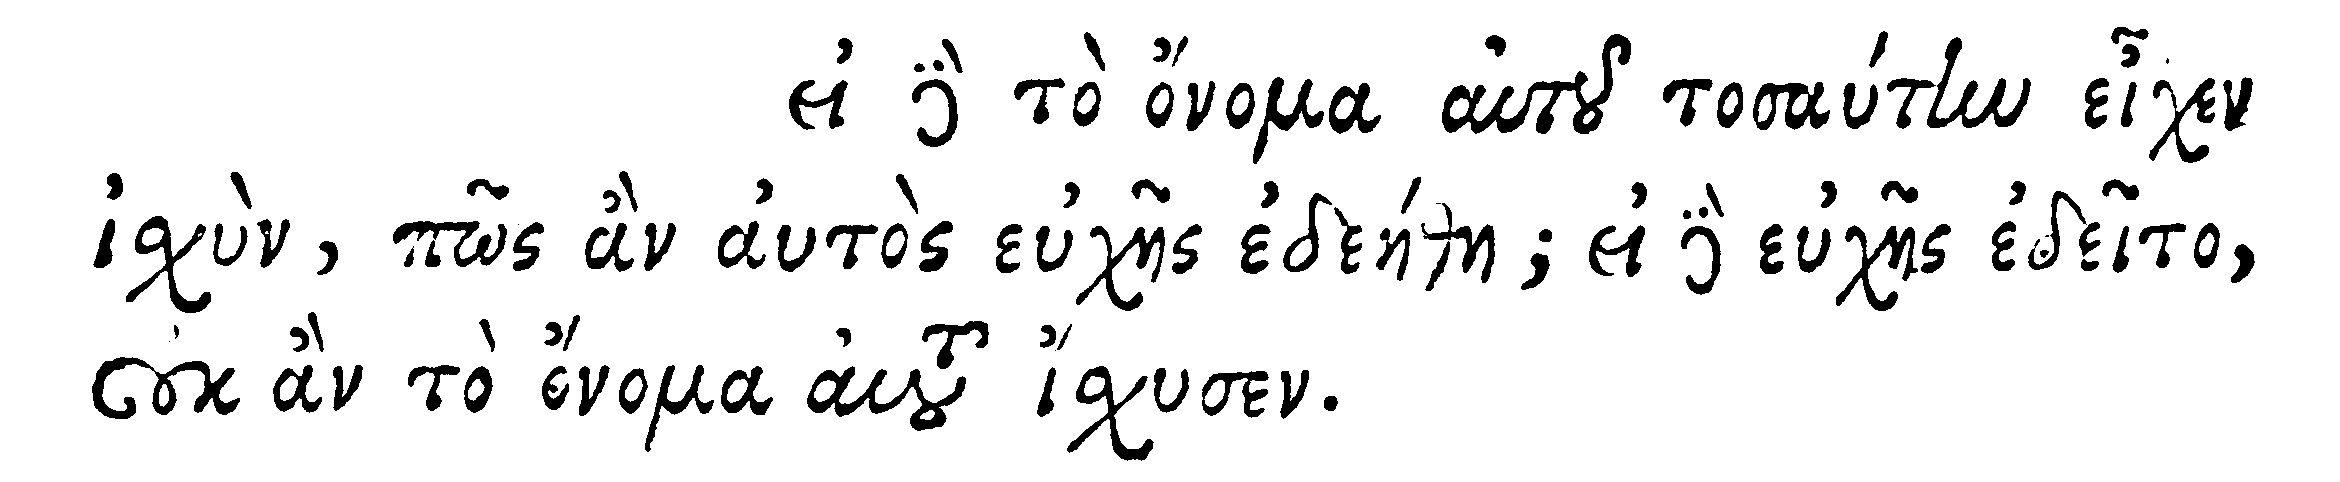 εἰ δὲ τὸ ὄνομα αὐτοῦ τοσαύτην εἶχεν
ἰσχὺν, πῶς ἂν αὐτὸς εὐχῆς ἐδεήθη; εἰ δὲ εὐχῆς ἐδεῖτο,
οὐκ ἂν τὸ ὄνομα αὐτοῦ ἴσχυσεν.